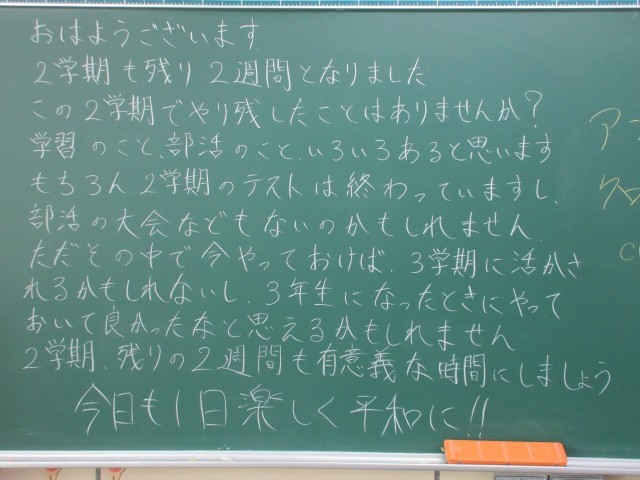 おはようございます
2学期も残り2週間となりました
この2学期でやり残したことはありませんか?
学習のこと、部活のこと、いろいろあると思います
もちろん2学期のテストは終わっていますし、
部活の大会などもないのかもしれません
ただその中で今やっておけば、3学期に活かさ
れるかもしれないし、3年生になったときにやって
おいて良かったなと思えるかもしれません
2学期、残りの2週間も有意義な時間にしましょう
今日も1日楽しく平和に!!